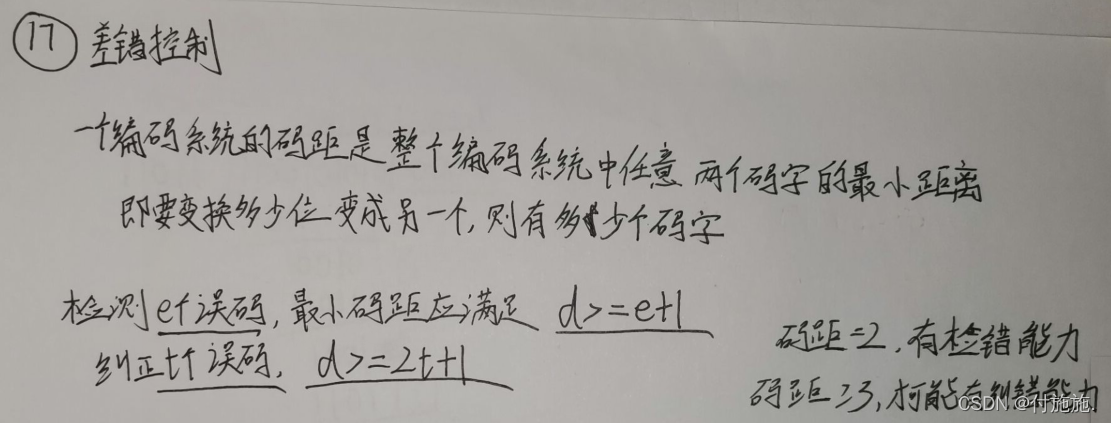 17 差错控制
一个编码系统的码距是整个编码系统中任意两个码字的最小距离
即要变换多少位变成另一个,则有多少个码字
检测e个误码,最小码距应满足 d>=e+1
纠正t个误码, d>=2t+1
码距=2,有检错能力
码距≥3,才可能有纠错能力
CSDN @付施施